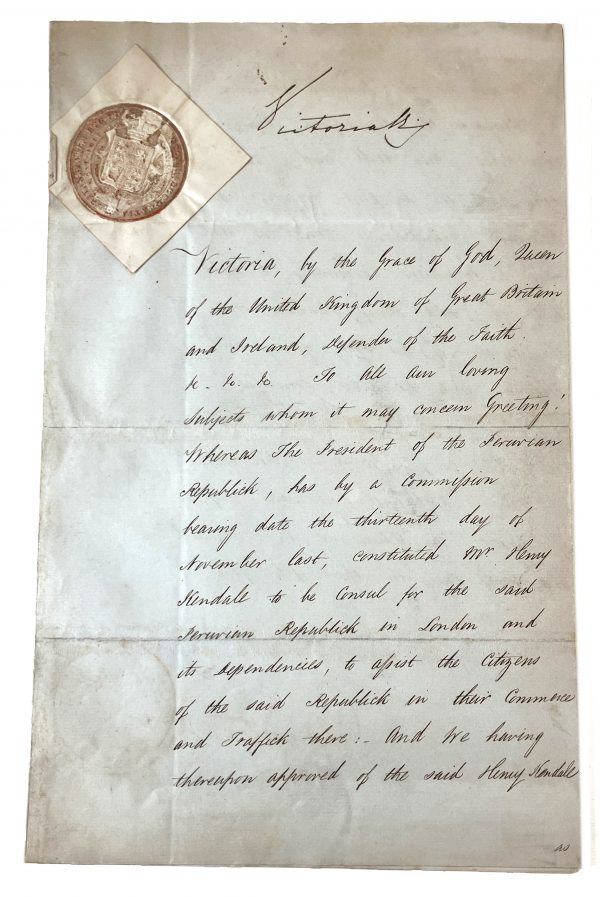 Victoria R
Victoria, by the Grace of God, Queen
of the United Kingdom of Great Britain
and Ireland, Defender of the Faith.
&c. &c. &c. To All our loving
Subjects whom it may concern Greeting!
Whereas The President of the Peruvian
Republick, has by a Commission
bearing date the thirteenth day of
November last, constituted Mr. Henry
Kendale to be Consul for the said
Peruvian Republick in London and
its Dependencies, to assist the Citizens
of the said Republick in their Commerce
and Traffick there:- And We having
thereupon approved of the said Henry Kendale
as